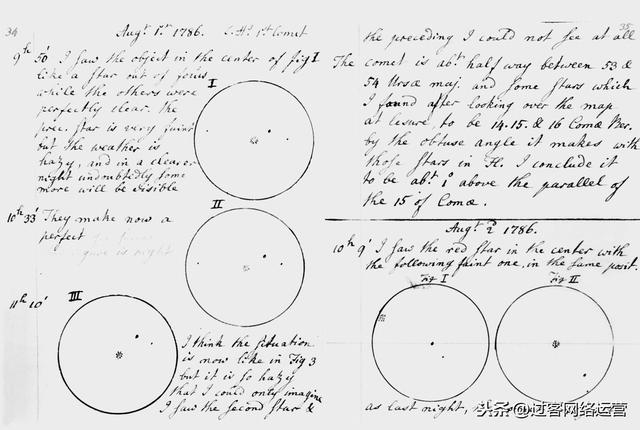 34
Augt. 1st. 1786. C. H's. 1st Comet
9h 50' I saw the object in the center of fig I
like a star out of focus
while the others were
perfectly clear. the
prec. star is very faint
but the weather is
hazy, and in a clearer
night undoubtedly some
more will be visible
I
10h 33' They make now a
perfect
II
11h 10'
III
I think the situation
is now like in Fig 3
but it is so hazy
that I could only imagine
I saw the second star &
35
the preceding I could not see at all
The comet is abt. half way between 53 &
54 Ursæ maj. and some stars which
I found after looking over the map
at lesure to be 14. 15. & 16 Comæ Ber.
by the obtuse angle it makes with
those stars in Fl. I conclude it
to be abt. 1° above the parallel of
the 15 of Comæ.
Augt. 2 1786.
10h 9' I saw the red star in the center with
the following faint one, in the same posit.
Fig I
Fig II
as last night,
头条@过客网络运营